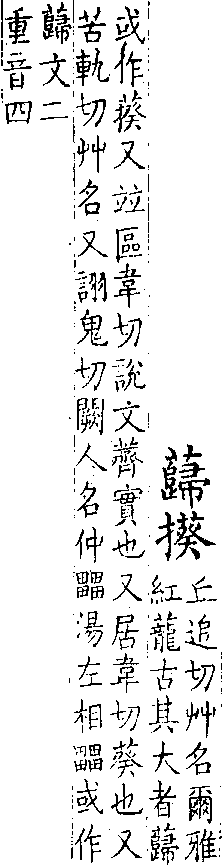 蘬揆
丘追切艸名爾雅
紅蘢古其大者蘬
或作葵又竝區韋切說文薺實也又居韋切葵也又
苦軌切艸名又詡鬼切闕人名仲畾湯左相畾或作
蘬文二
重音四